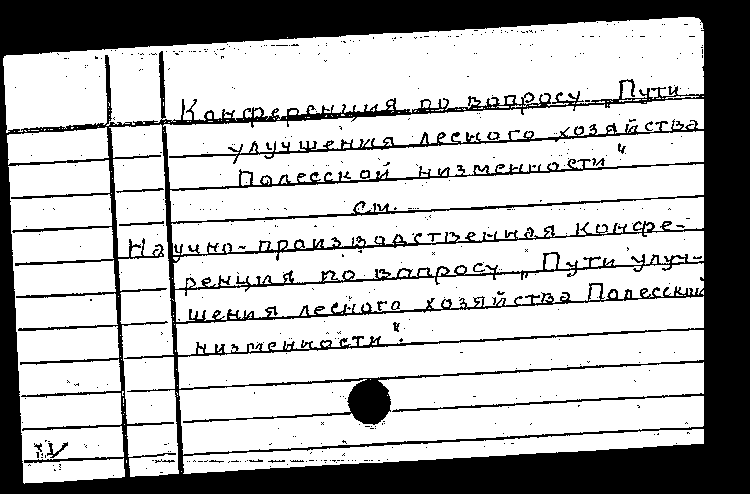 Конференция по вопросу „Пути
улучшения лесного хозяйства
Полесской низменности"
см.
Научно-производственная конфе-
ренция по вопросу „Пути улуч-
шения лесного хозяйства Полесской
низменности".